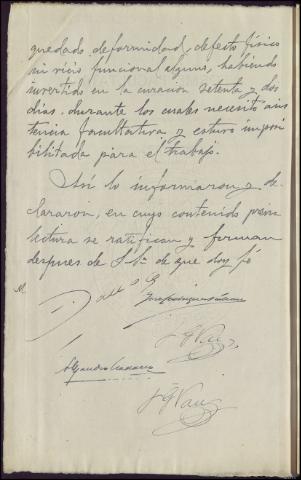 quedado deformidad, defecto físico
ni vicio funcional alguno, habiendo
invertido en la curacion setenta y dos
dias, durante los cuales necesitó asis
tencia facultativa y estuvo imposi
bilitada para el trabajo.
Asi lo informaron y de-
clararon, en cuyo contenido previa
lectura se ratifican y firman
despues de S. Sª de que doy fé
Alejandro